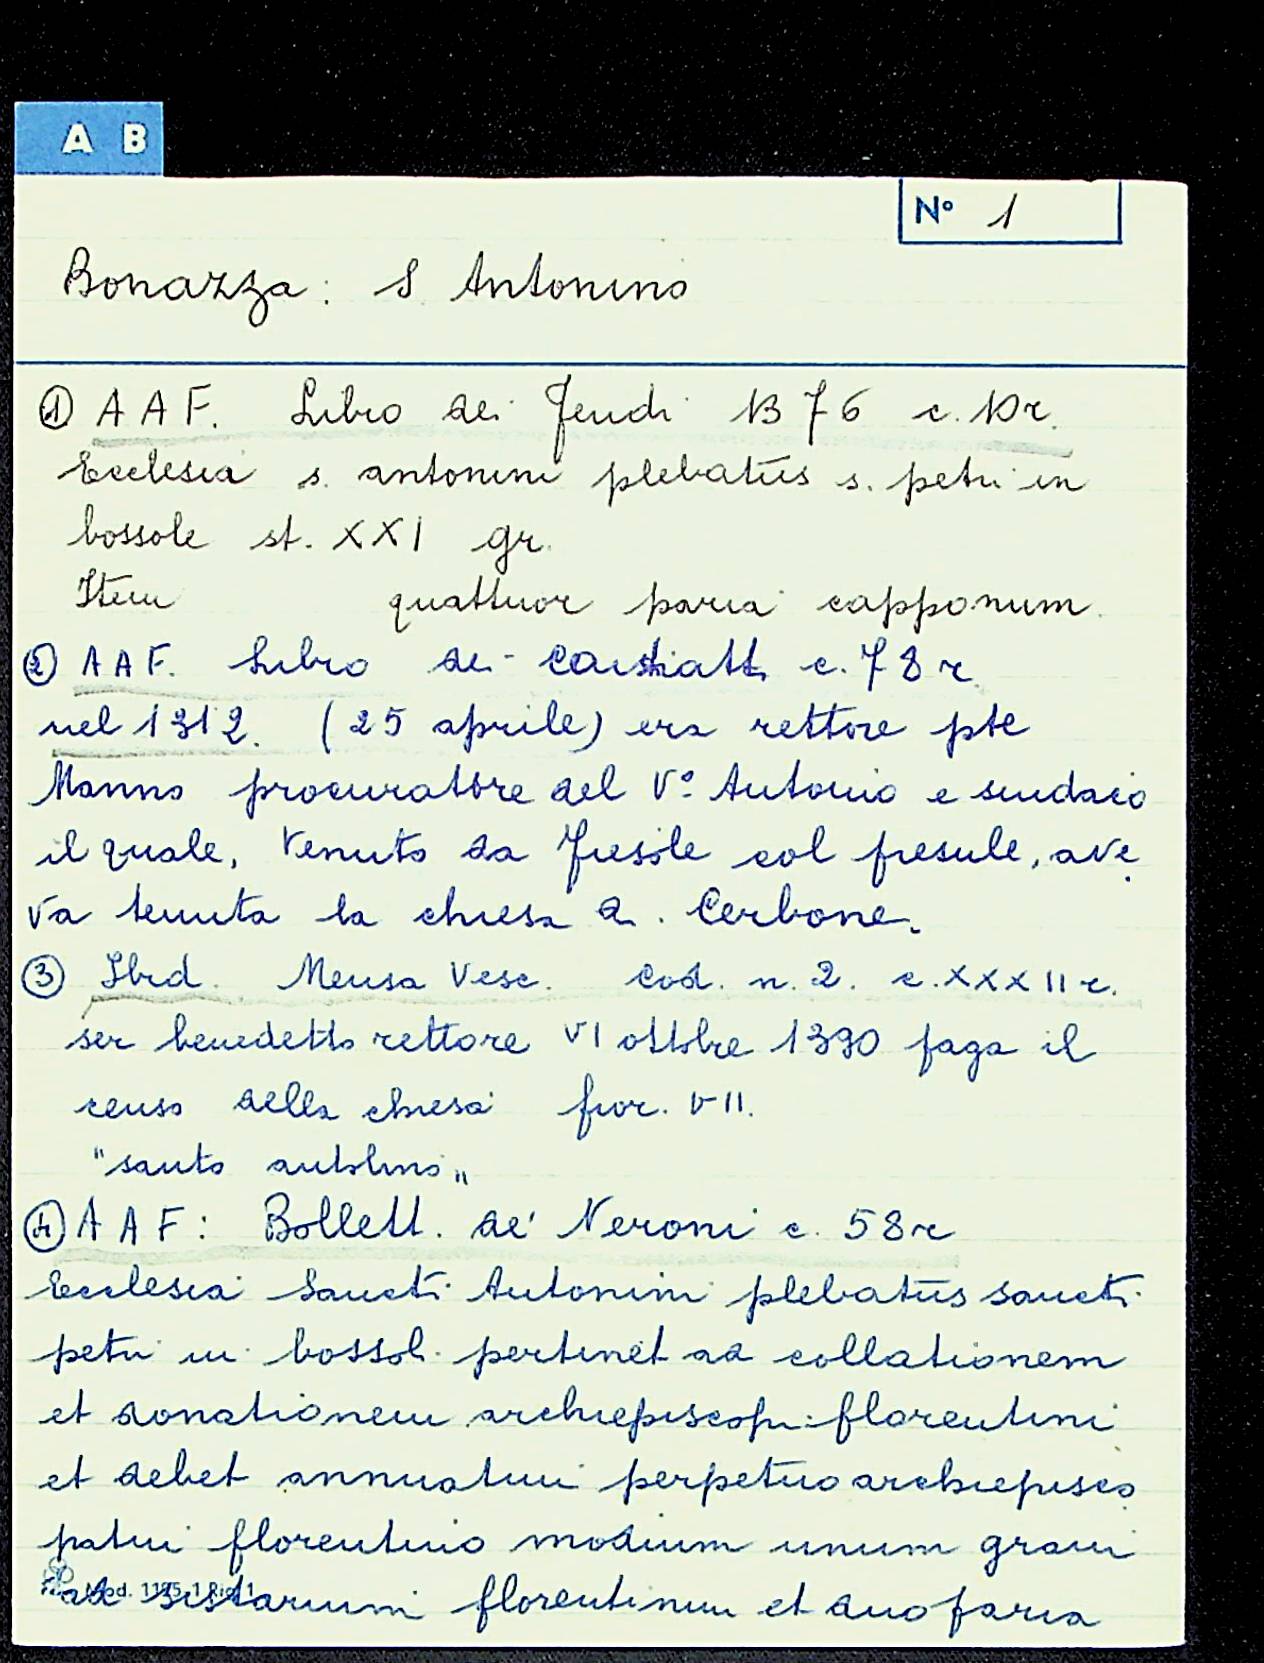 A B
N° 1
Bonazza: S. Antonino
① A A F. Libro dei feudi 1376 c. 10r.
Ecclesia s. antonini plebatūs s. petri in
bossole st. XXI gr.
Item quattuor paria capponum.
② A A F. Libro dei c. 78 r.
nel 1312. (25 aprile) era rettore pte
Manno procuratore del V° Antonio e sindaco
il quale, venuto da Fiesole col presule, ave
va tenuta la chiesa d. Cerbone.
③ Ibid. Mensa Vesc. Cod. n. 2. c. XXXII r.
ser benedetto rettore VI ottobre 1390 paga il
censo della chiesa fior. VII.
"santo antolino"
④ A A F: Bollett. de' Neroni c. 58 r
Ecclesia Sancti Antonini plebatūs sancti
petri in bossol. pertinet ad collationem
et donationem archiepiscopi florentini
et debet annuatim perpetuo archiepisco
patui florentino modium unum grani
Mod. 1195-1 Rig. 1
ad sistarium florentinum et duo paria